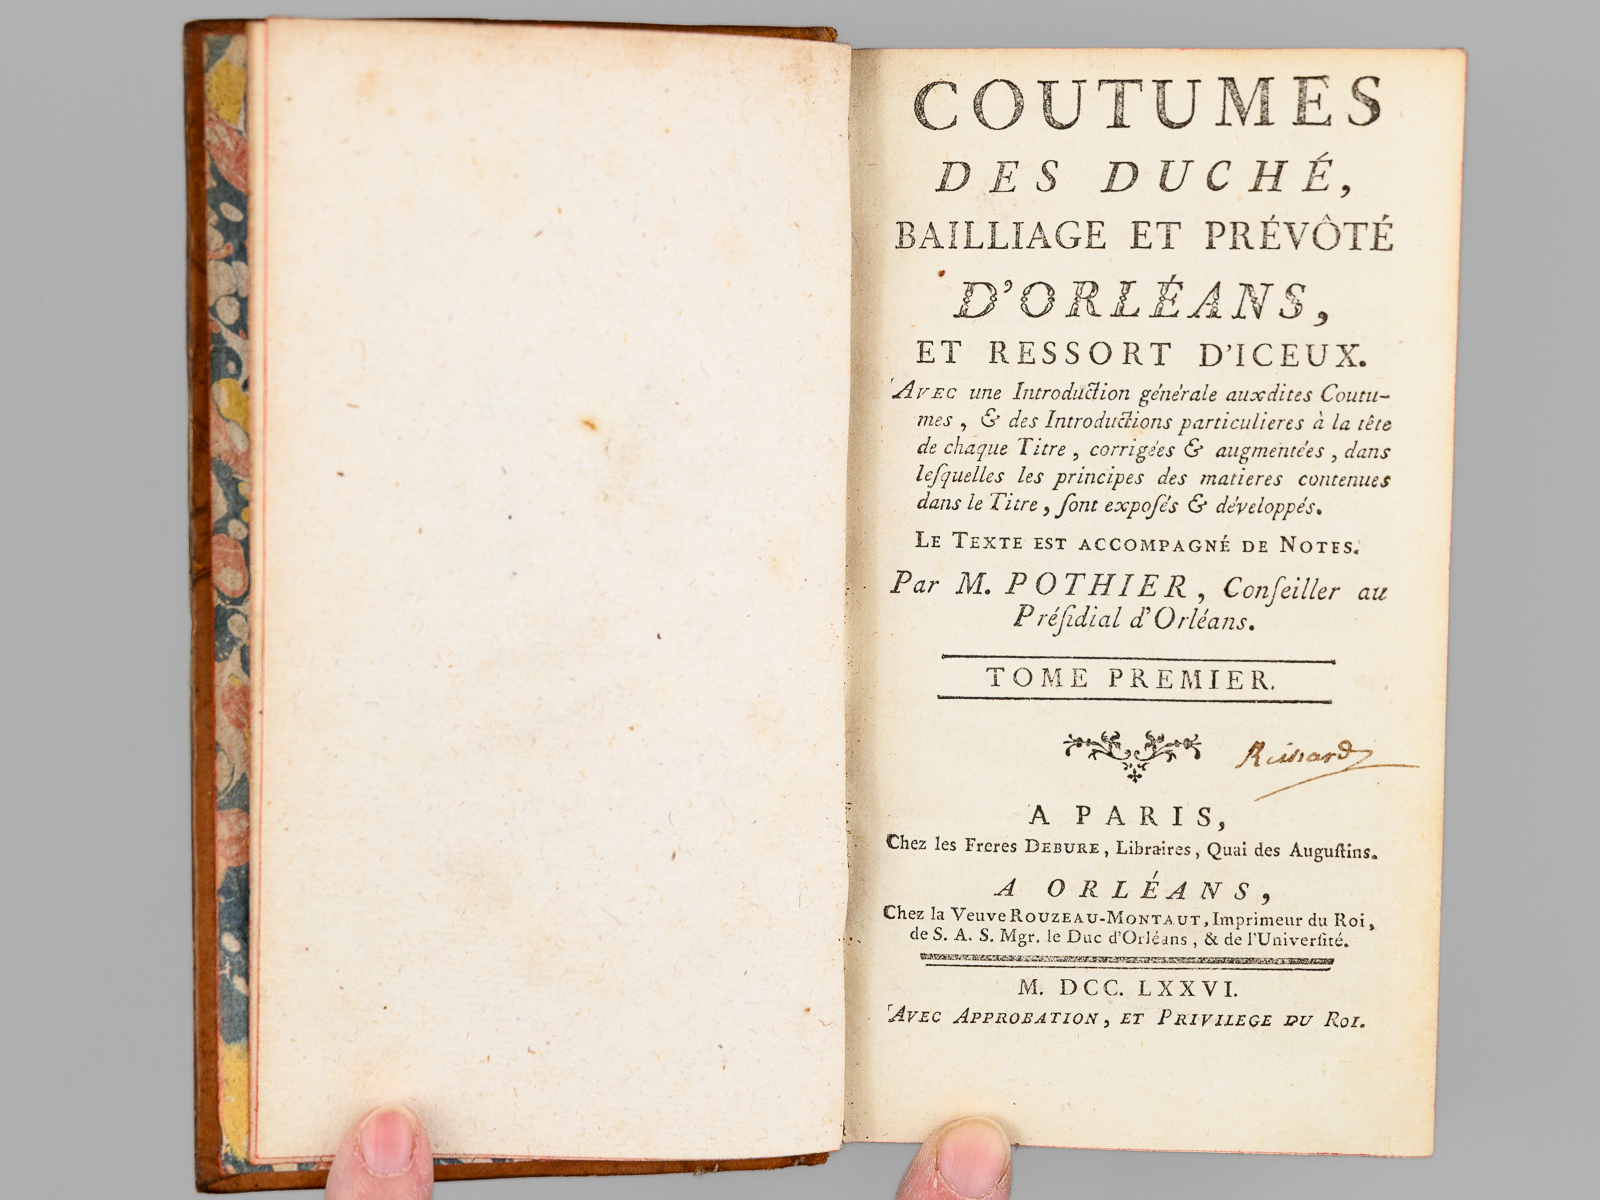 COUTUMES
DES DUCHÉ,
BAILLIAGE ET PRÉVÔTÉ
D'ORLÉANS,
ET RESSORT D'ICEUX.
AVEC une Introduction générale auxdites Coutu-
mes, & des Introductions particulieres à la tête
de chaque Titre, corrigées & augmentées, dans
leſquelles les principes des matieres contenues
dans le Titre, ſont expoſés & développés.
LE TEXTE EST ACCOMPAGNÉ DE NOTES.
Par M. POTHIER, Conſeiller au
Préſidial d'Orléans.
TOME PREMIER.
A PARIS,
Chez les Freres DEBURE, Libraires, Quai des Auguſtins.
A ORLÉANS,
Chez la Veuve ROUZEAU-MONTAUT, Imprimeur du Roi,
de S. A. S. Mgr. le Duc d'Orléans, & de l'Univerſité.
M. DCC. LXXVI.
AVEC APPROBATION, ET PRIVILEGE DU ROI.